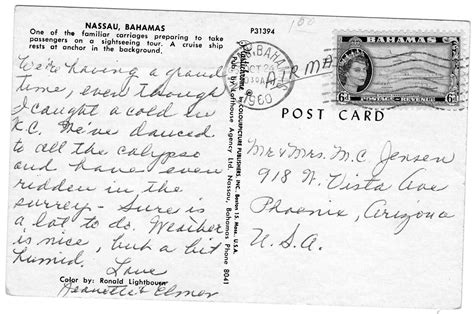 NASSAU, BAHAMAS
One of the familiar carriages preparing to take
passengers on a sightseeing tour. A cruise ship
rests at anchor in the background.
We're having a grand
time, even though
I caught a cold in
K.C. We've danced
to all the calypso
and have even
ridden in the
surrey - Sure is
a lot to do. Weather
is nice, but a bit
humid. Love
Color by: Ronald Lightbourn
Jeanette & Elmer
P31394
100
BAHAMAS
1960
AIR MAIL
BAHAMAS
6d POSTAGE REVENUE 6d
by COLOURPICTURE PUBLISHERS, INC. Boston 15, Mass. U.S.A.
Pub. by Lofthouse Agency Ltd. Nassau, Bahamas Phone 8041
POST CARD
Mr & Mrs. M.C. Jensen
918 W. Vista Ave
Phoenix, Arizona
U.S.A.